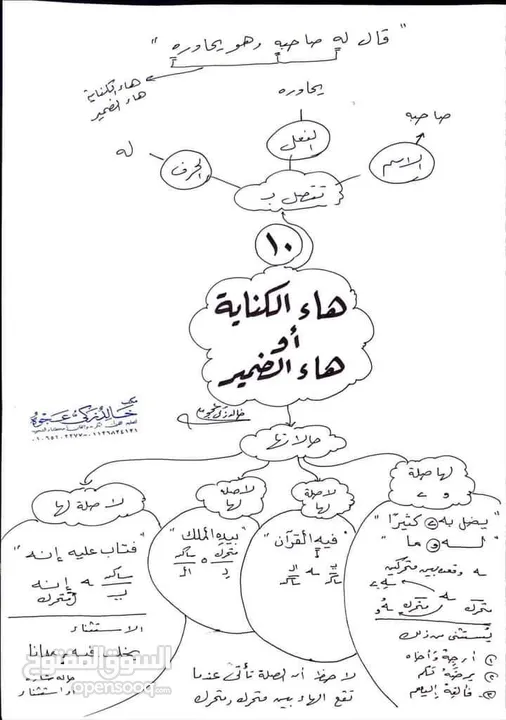 " قال له صاحبه وهو يحاوره "
هاء الكناية
هاء الضمير
يحاوره
صاحبه
له
الفعل
الاسم
الحرف
تتصل بـ
١٠
هاء الكناية
أو
هاء الضمير
مكتب
خالد زكي عجوة
حالاتها
لها صلة
و ے
لا صلة
لها
لا صلة
لها
لا صلة لها
"يضل به ے كثيرًا"
"له و ما"
ـه وقعت بين متحركين
متحرك ـه متحرك
يستثنى من ذلك
١ أرجه وأخاه
٢ يرضه لكم
٣ فألقه إليهم
"فيه القرآن"
ساكن ـه ساكن
"بيده الملك"
متحرك ه ساكن
"فتاب عليه إنه"
ساكن ـه إنه
متحرك
الاستثناء
يخلد فيه مهانا
حالة شاذة
أو استثناء
لاحظ أن الصلة تأتي عندما
تقع الهاء بين متحرك ومتحرك
السوق المفتوح
opensooq.com